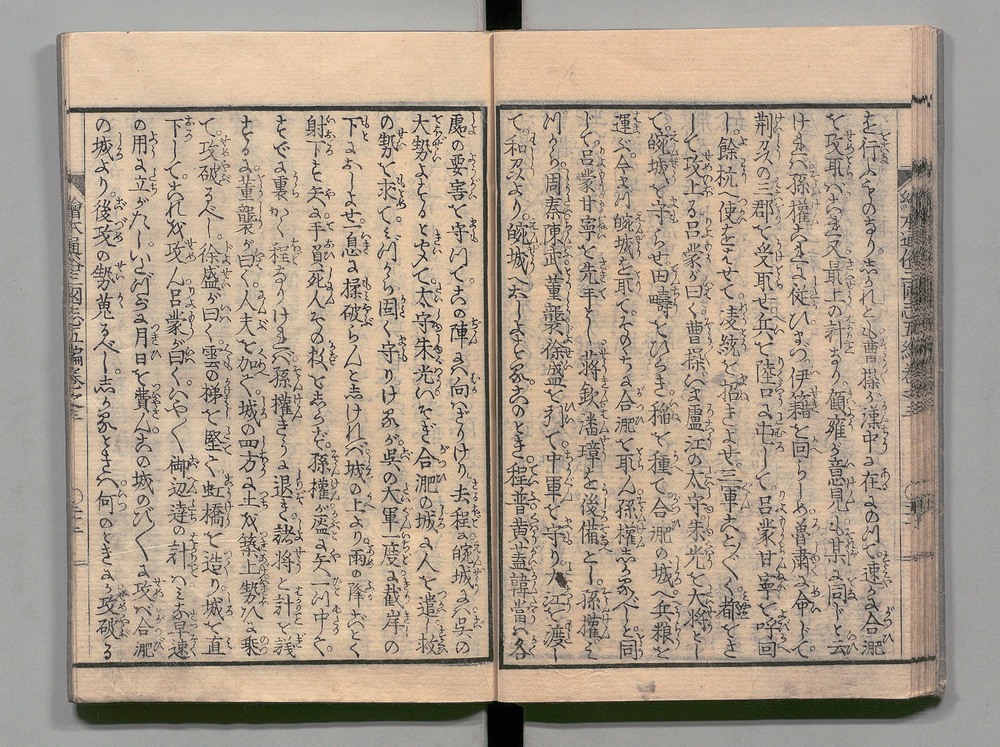 を行ふべのまり志かれども曹操が漢中に在よのりて速かよ合肥
を攻取バ是又最上の計より顧雍が意見も某に同じと云
けまバ孫權に従ひまづ伊籍を回らしめ魯粛に命じて
荊州の三郡を受取せ兵を陸口に屯して呂蒙甘寧を呼回
し餘杭へ使をはせて凌統を招きよせ三軍ことごとく都をさ
して攻上る呂蒙が曰く曹操いま廬江の太守朱光を大将とし
て皖城を守らせ田疇をひらき稲を種て合肥の城へ兵粮を
運ぶ今まづ皖城を取てそののちに合肥を取ん孫權しかるべしと同
じて呂蒙甘寧を先手とし蒋欽潘璋を後備とし孫權みづ
から周泰陳武董襲徐盛を引て中軍を守り江を渡し
て和州より皖城へおしよせ此とき程普黄蓋韓當ハ各
處の要害を守りて此陣にハ向ハざりけり去程に皖城にハ呉の
大勢よするときいて太守朱光いそぎ合肥の城に人を遣し救
の勢を求てみづから固く守りける呉の大軍一度に截岸の
下におしよせ一息に揉破らんとしけれバ城の上より雨の降ごとく
射下す矢に手負死人その数をしらず孫權が蓋にも矢一つ中て
すでに裏かく程なりけれバ孫權きうに退き諸将と計を議
するに董襲が曰く人夫を加へ城の四方に土を築上勢ひに乗
て攻破るべし徐盛が曰く雲の梯を堅て虹橋を造り城を直
下してこれを攻ん呂蒙が曰くいやく御辺達の計ハみな早速
の用に立がたしいたづらに月日を費んこの城のびくに攻バ合肥
の城より後攻の勢蒐るべししかるときハ何のときにか攻破る
繪本通俗三國志五編巻之三